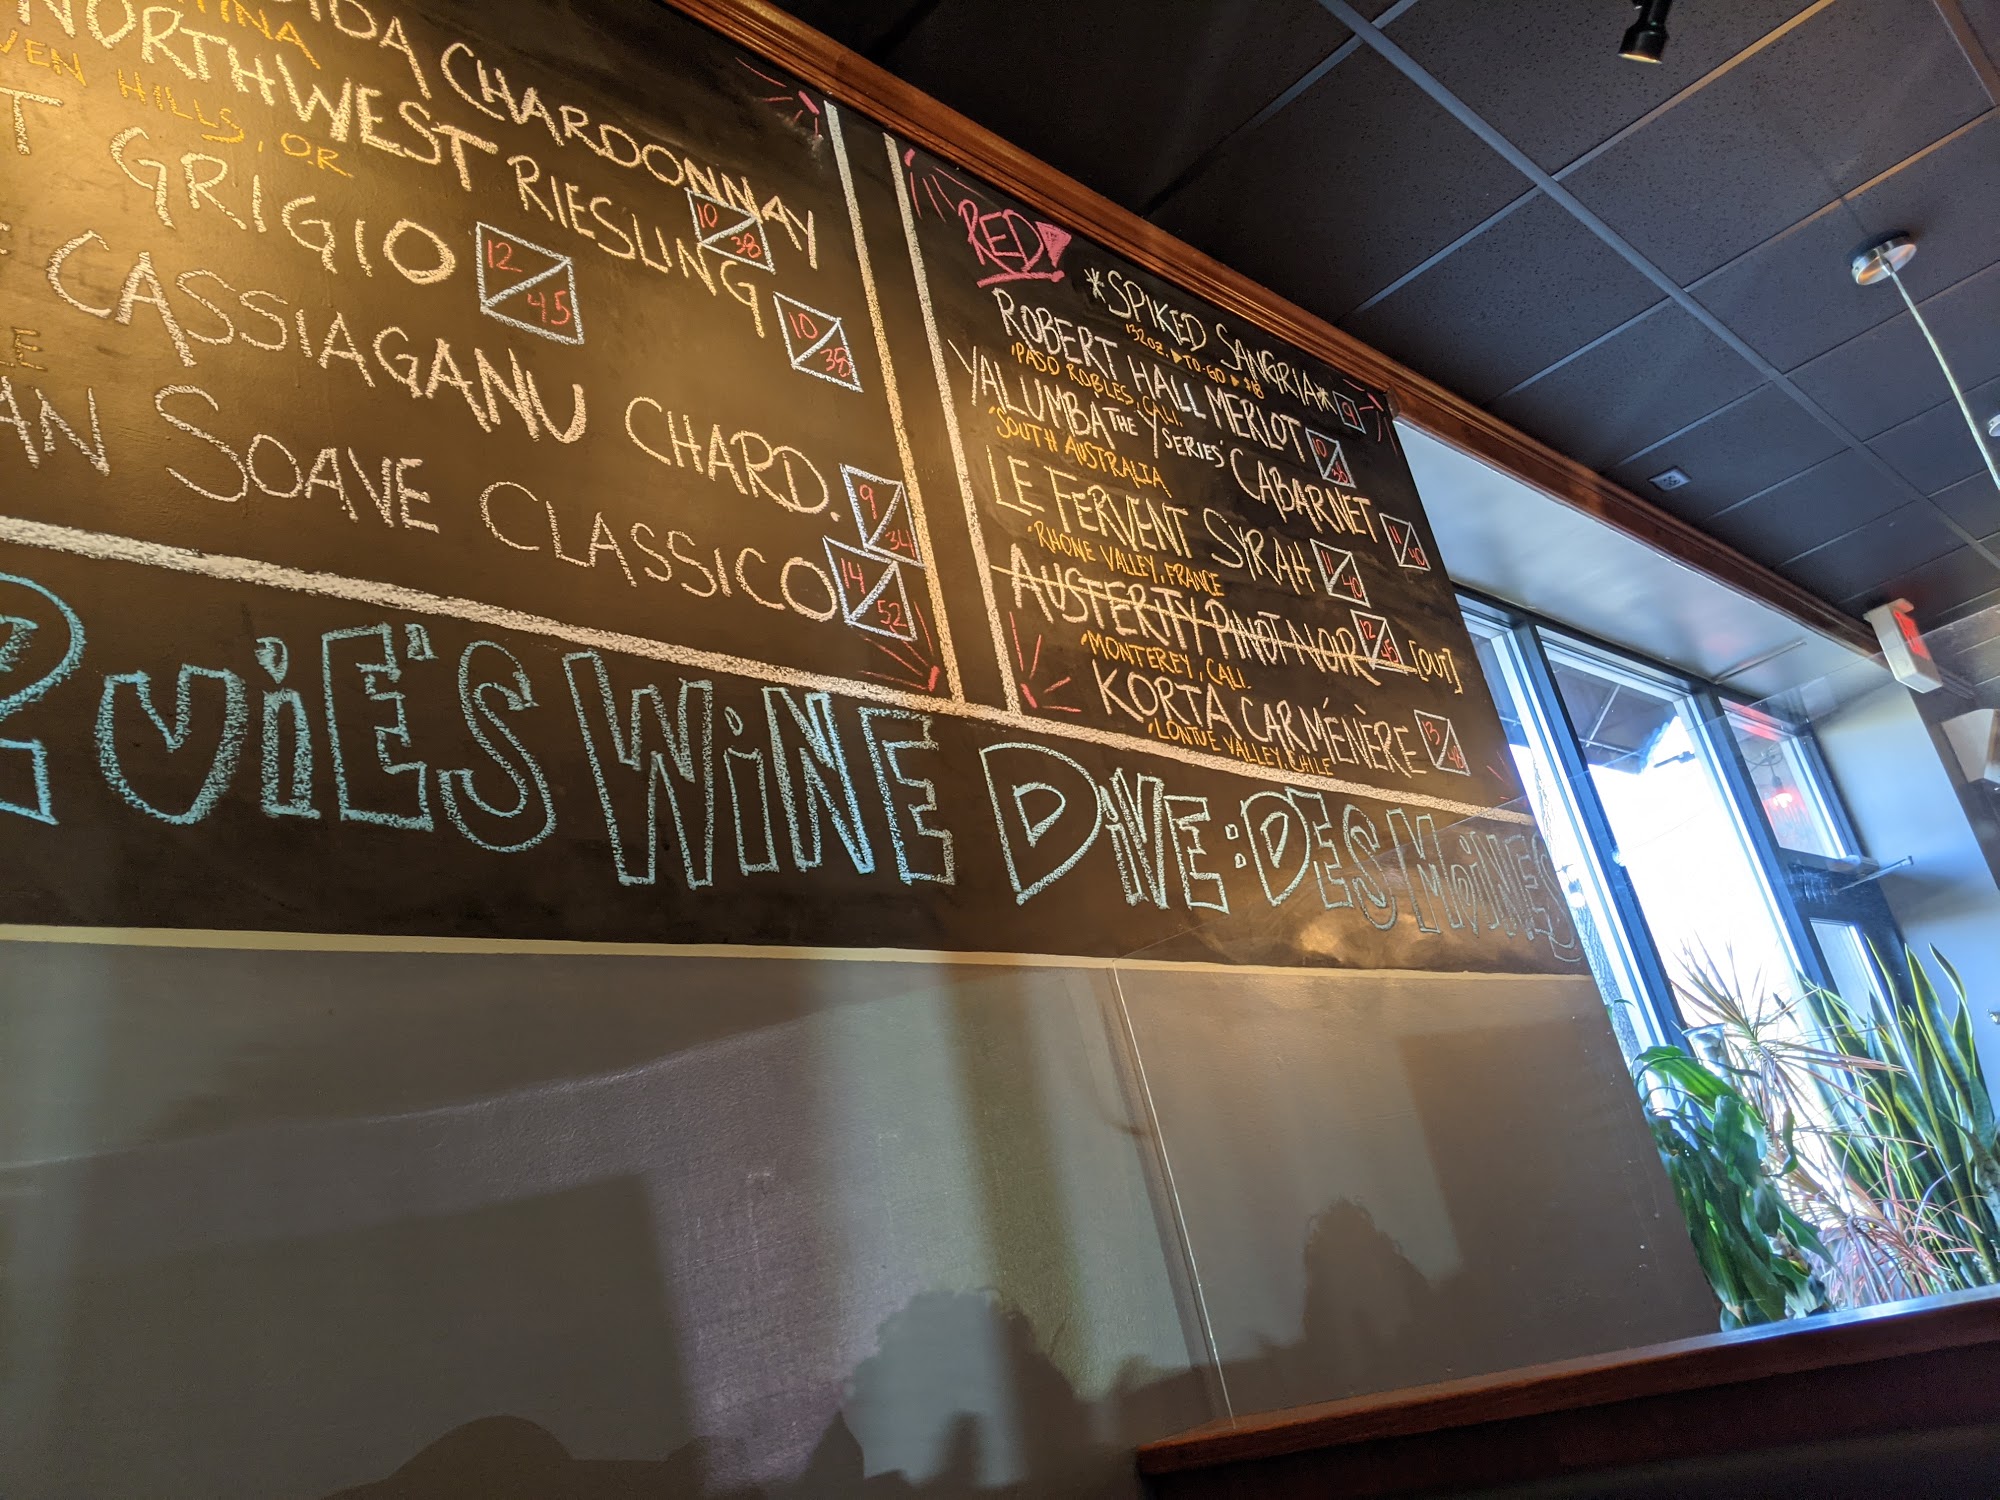 CHARDONNAY 10 38
HILLS, OR
NORTHWEST RIESLING 10 38
GRIGIO 12 45
CASSIAGANU CHARD. 9 34
SOAVE CLASSICO 14 52
RED
*SPIKED SANGRIA* 9
32OZ. ▶ TO-GO ▶ $18
ROBERT HALL MERLOT 10 38
PASO ROBLES, CALI.
YALUMBA THE 'Y SERIES' CABARNET 11 40
SOUTH AUSTRALIA
LE FERVENT SYRAH 11 40
RHONE VALLEY, FRANCE
AUSTERITY PINOT NOIR 12 45 [OUT]
MONTEREY, CALI.
KORTA CARMÉNÈRE 13 48
LONTUE VALLEY, CHILE
WINE DIVE: DES MOINES